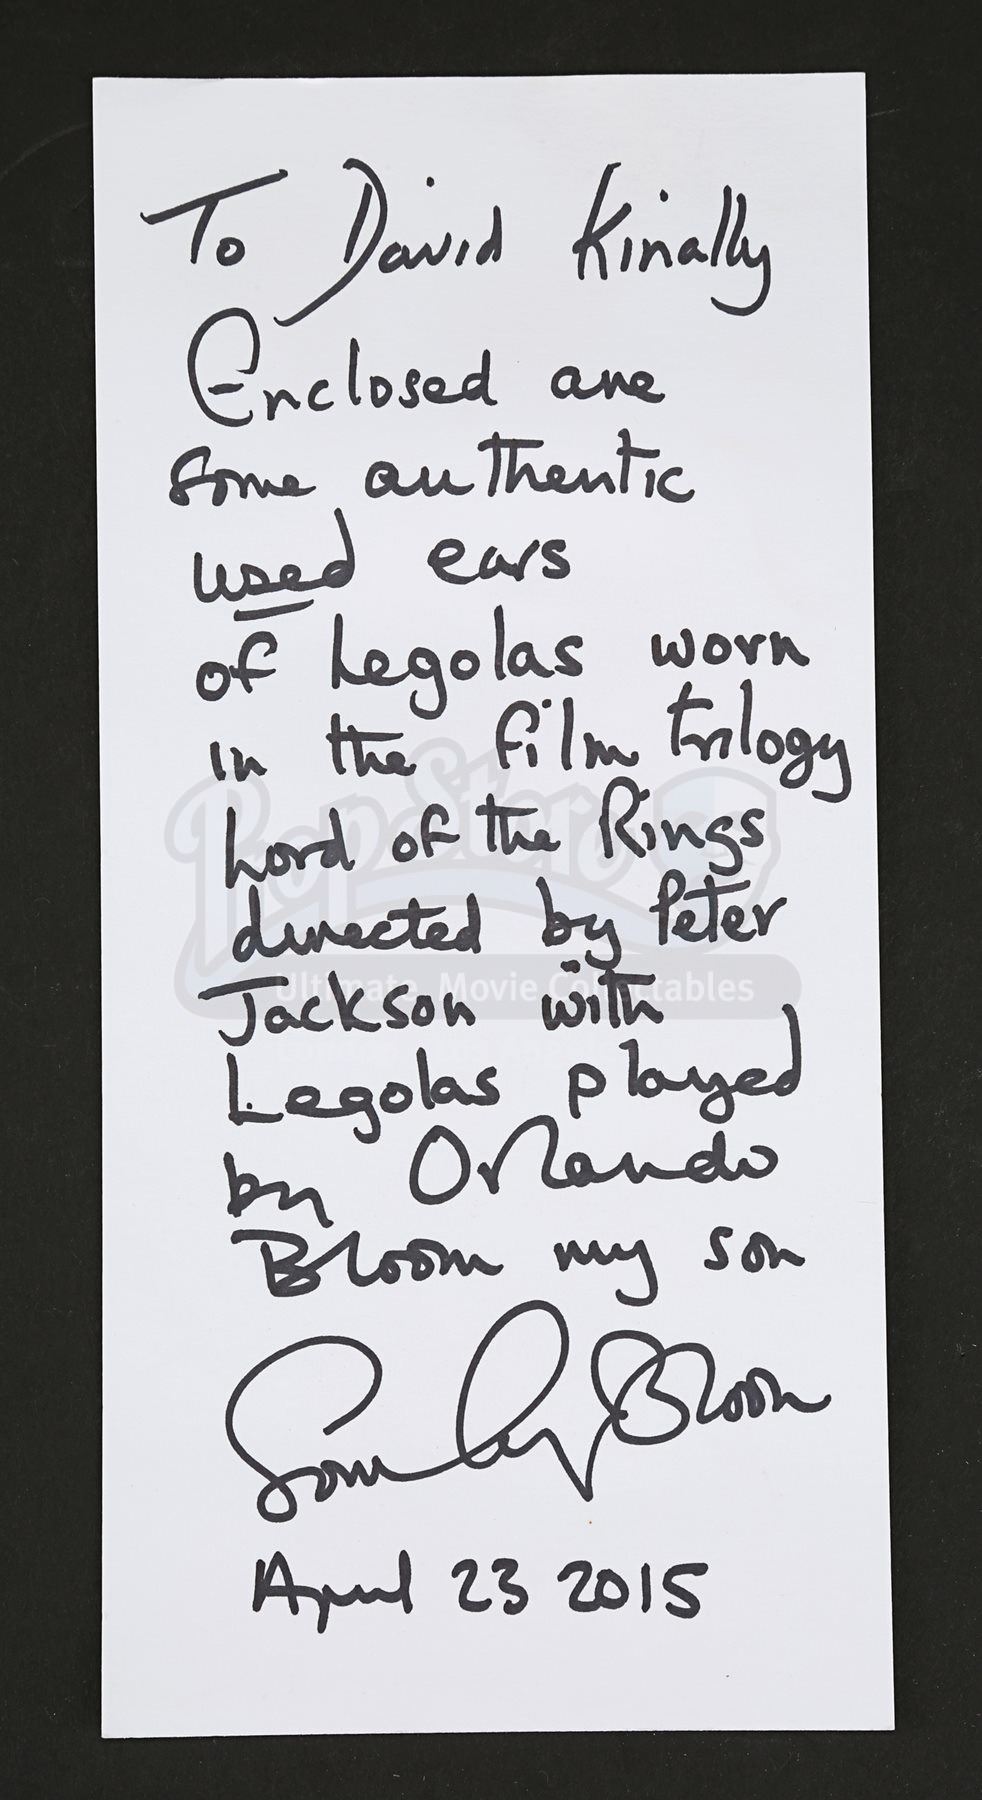 To David Kinally
Enclosed are
some authentic
used ears
of Legolas worn
in the film trilogy
Lord of the Rings
directed by Peter
Jackson with
Legolas played
by Orlando
Bloom my son
Bloom
April 23 2015
PropStore
Ultimate Movie Collectables